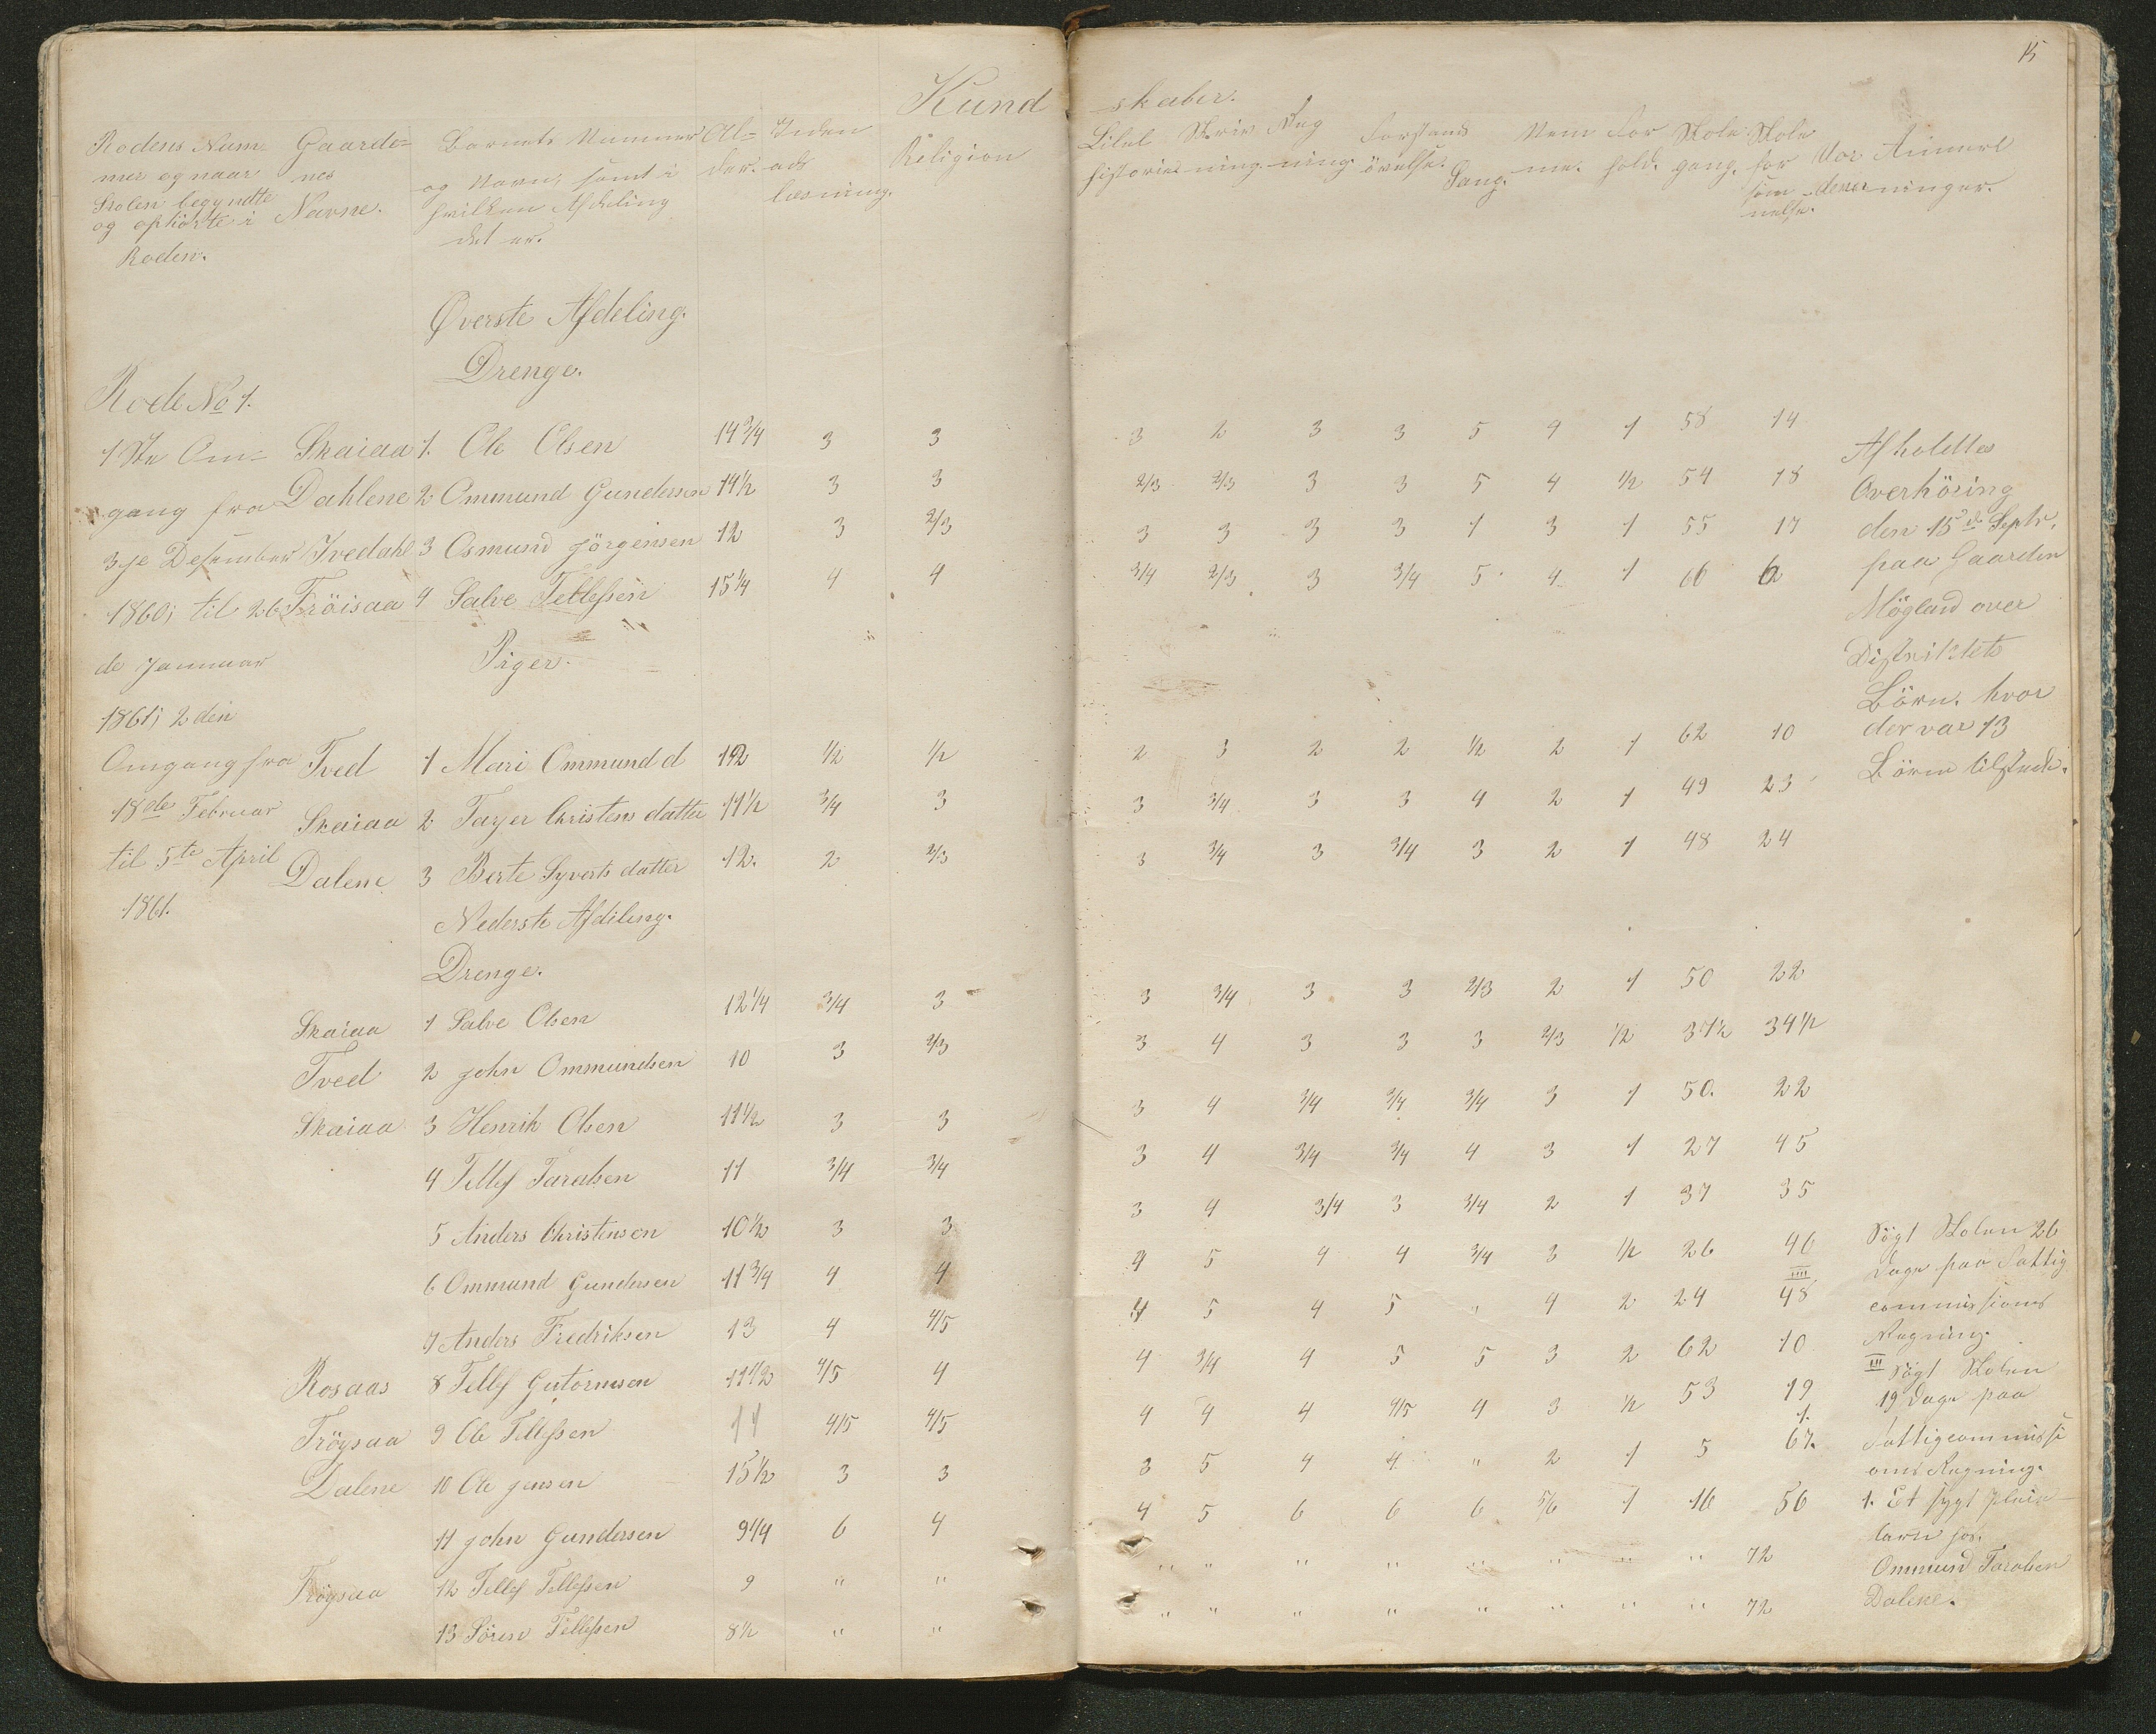 15
Kundskaber.
Rodens Num- Gaarde- Barnets Nummer Al- Inden Religion Bibel Skriv Reg Forstands Nem For Skole Skole
mer og naar nes og Navn, samt i der. ads historie. ning ning. övelse. Sang. me. hold. gang. for Vor Anmærk
Skolen begyndte Navne. hvilken Afdeling læsning. söm- denes ninger.
og ophörte i det er. melse.
Roden.
Øverste Afdeling.
Drenge.
Rode No 1.
1ste Om- Skaiaa 1. Ole Olsen 14 3/4 3 3 3 2 3 3 5 4 1 58 14 Afholdtes
gang fra Dahlene 2 Ommund Gundersen 14 1/2 3 3 2/3 2/3 3 3 5 4 1/2 54 18 Overhöring
3je Desember Tvedahl 3 Osmund Jörgensen 12 3 2/3 3 3 3 3 1 3 1 55 17 den 15de Septr.
1860; til 26 Fröisaa 4 Salve Tellefsen 15 1/4 4 4 3/4 2/3 3 3/4 5 4 1 66 6 paa Gaarden
Mögland over
de Januar Piger. Distriktets
1861; 2den Börn. hvor
Omgang fra Tved 1 Mari Ommund d 12 1/2 1/2 2 3 2 2 1/2 2 1 62 10 der var 13
18de Februar Skaiaa 2 Tayer Christens datter 11 1/2 3/4 3 3 3/4 3 3 4 2 1 49 23 Börn tilstede.
til 5te April Dalene 3 Berte Syverts datter 12. 2 2/3 3 3/4 3 3/4 3 2 1 48 24
1861. Nederste Afdeling.
Drenge.
Skaiaa 1 Salve Olsen 12 1/4 3/4 3 3 3/4 3 3 2/3 2 1 50 22
Tved 2 John Ommundsen 10 3 2/3 3 4 3 3 3 2/3 1/2 37 1/2 34 1/2
Skaiaa 3 Henrik Olsen 11 1/2 3 3 3 4 3/4 3/4 3/4 3 1 50. 22
4 Tellef Taralsen 11 3/4 3/4 3 4 3/4 3/4 4 3 1 27 45
5 Anders Christensen 10 1/2 3 3 3 4 3/4 3 3/4 2 1 37 35
6 Ommund Gundersen 11 3/4 4 4 4 5 4 4 3/4 3 1/2 26 46 Sögt Skolen 26
Dage paa Fattig
7 Anders Fredriksen 13 4 4/5 4 5 4 5 " 4 2 24 48 commissions
Regning.
Rosaas 8 Tellef Gutormsen 11 1/2 4/5 4 4 3/4 4 5 5 3 2 62 10 III Sögt Skolen
Fröysaa 9 Ole Tellefsen 14 4/5 4/5 4 4 4 4/5 4 3 1/2 53 19 19 Dage paa
Dalene 10 Ole Jensen 15 1/2 3 3 3 5 4 4 " 2 1 5 67. Fattigcommissi
ons Regning.
11 John Gundersen 9 1/4 6 4 4 5 6 6 6 5/6 1 16 56 1. Et sygt pleie
barn hos.
Fröysaa 12 Tellef Tellefsen 9 " " " " " " " " " " 72 Ommund Taralsen
13 Sören Tellefsen 8 1/2 " " " " " " " " " " 72 Dalene.